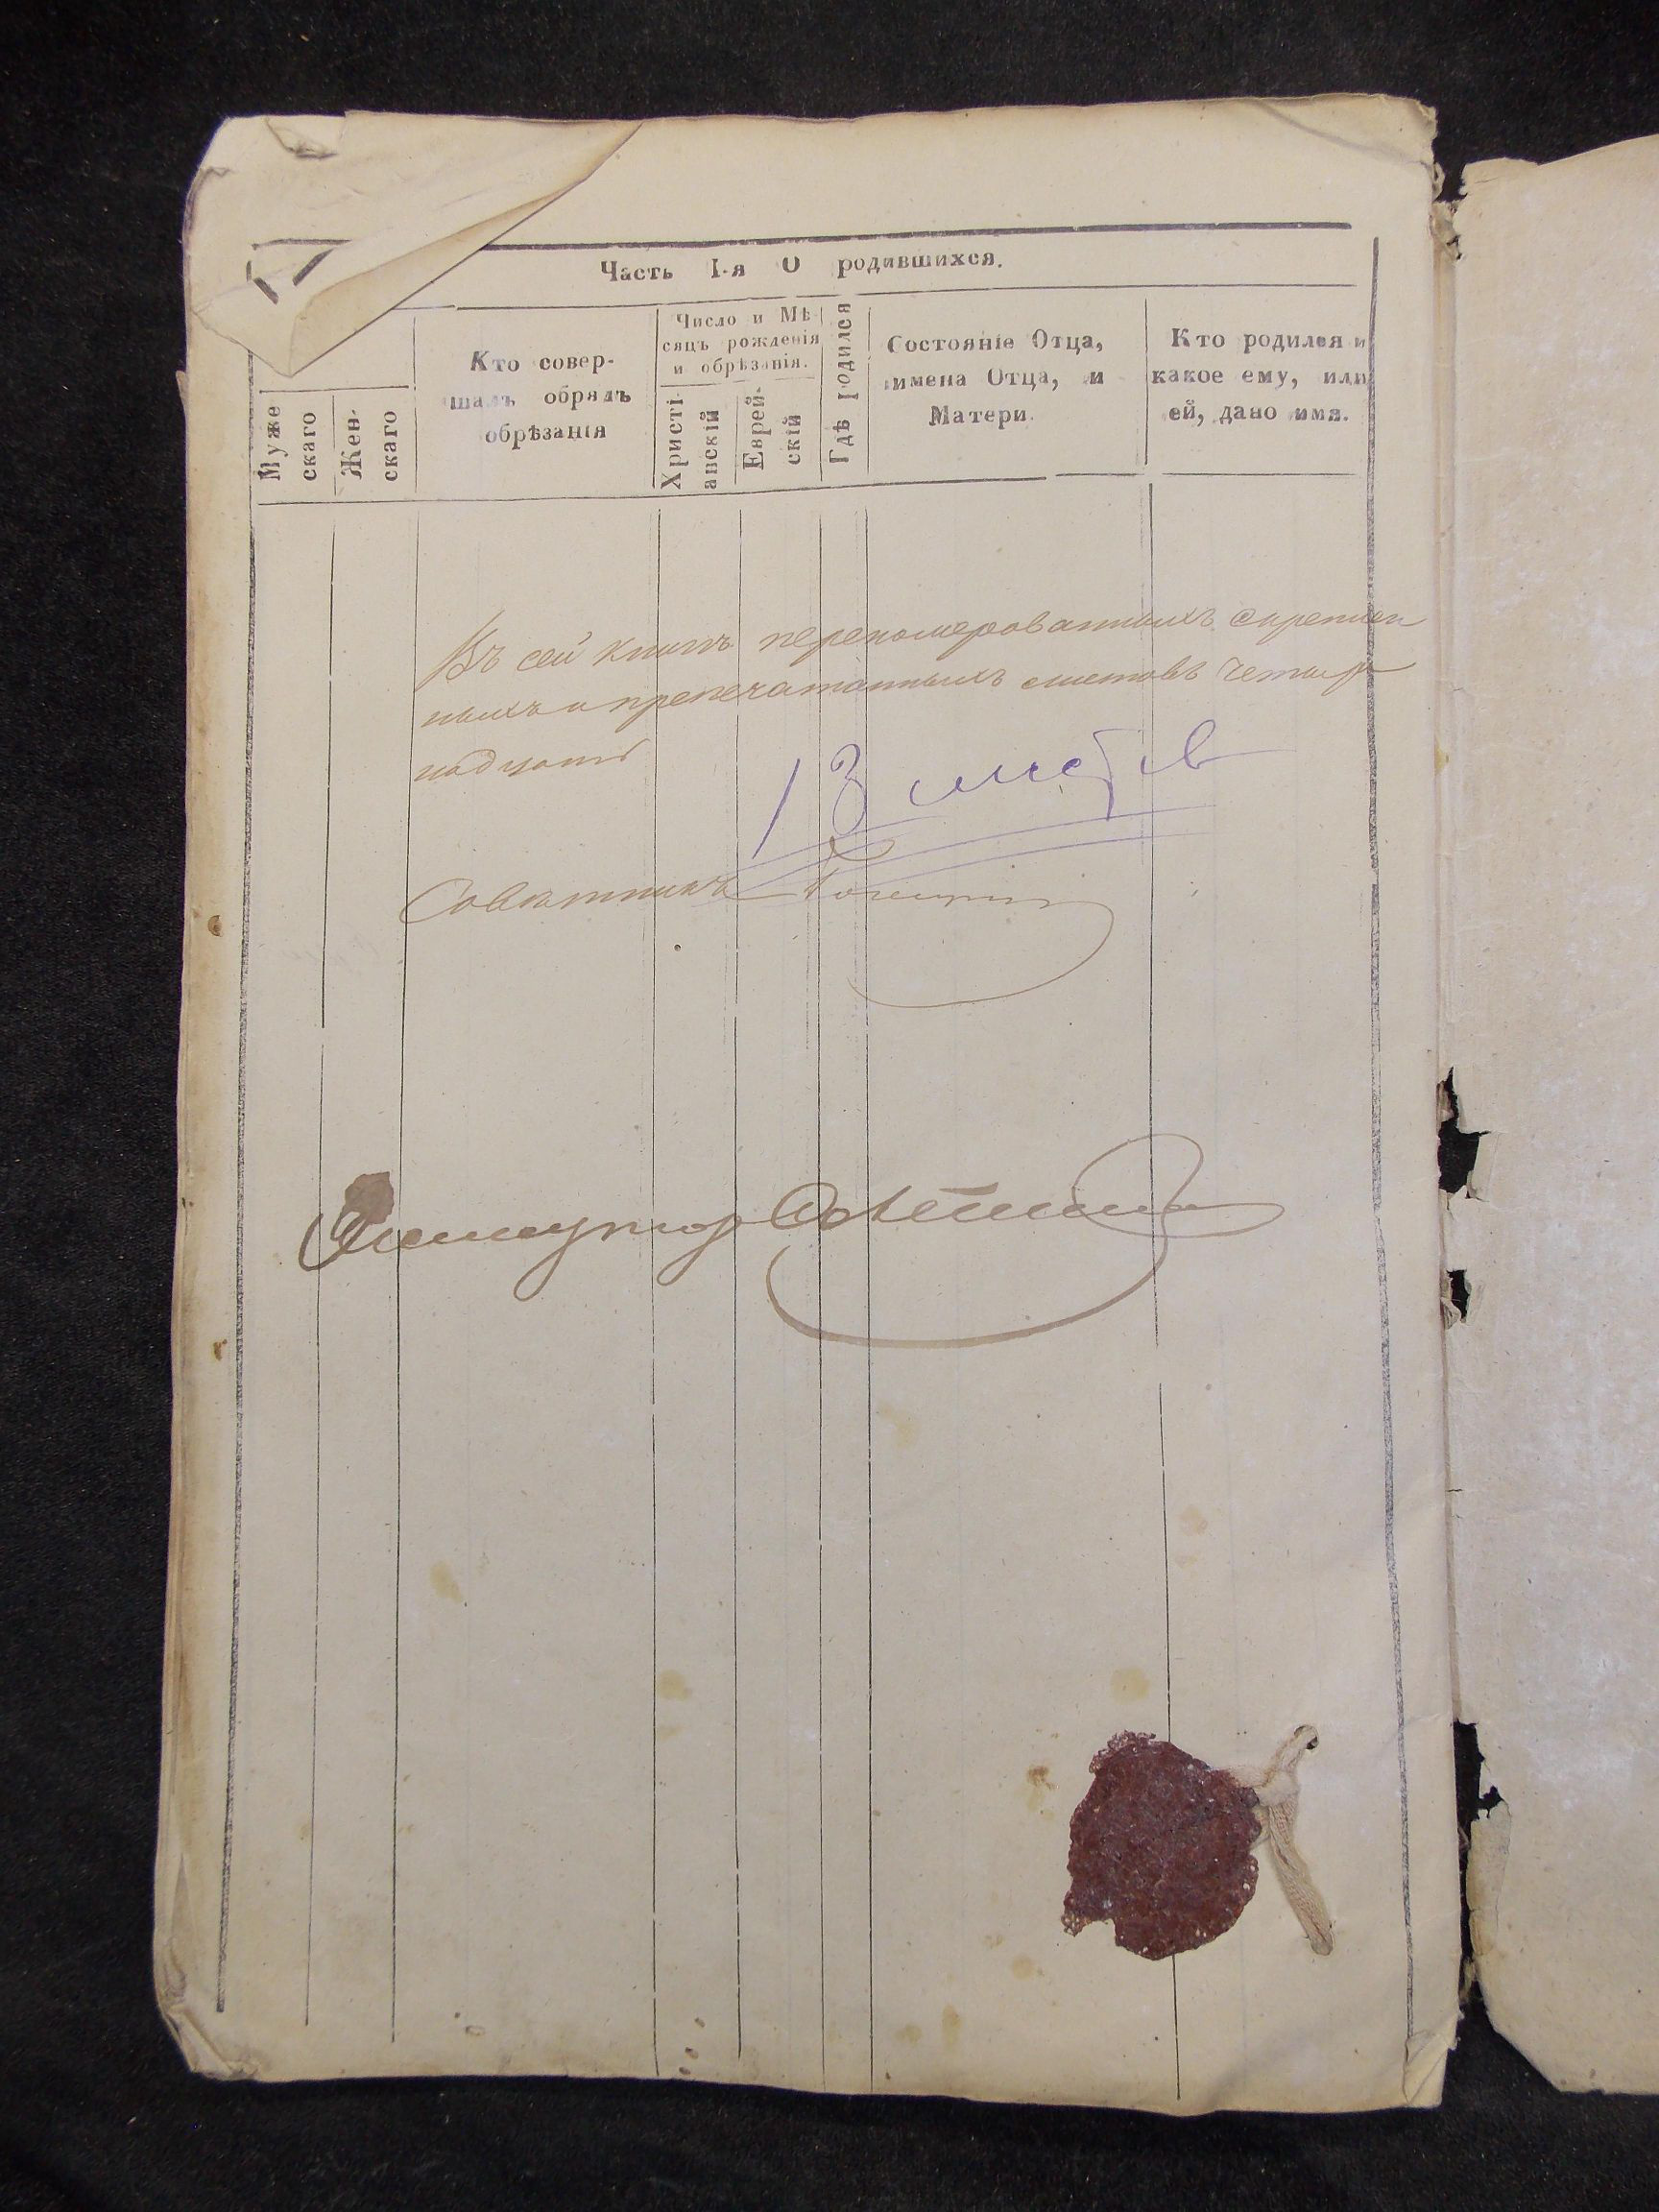 Часть I-я О родившихся.
Муже
скаго
Жен-
скаго
Кто совер-
шалъ обрядъ
обрѣзанія
Число и Мѣ
сяцъ рожденія
и обрѣзанія.
Христі-
анскій
Еврей-
скій
Гдѣ родился
Состояніе Отца,
имена Отца, и
Матери.
Кто родился и
какое ему, или
ей, дано имя.
Въ сей книгѣ перенумерованныхъ скреплен
ныхъ и препечатанныхъ листовъ четыр
надцать
13 листов
Советникъ